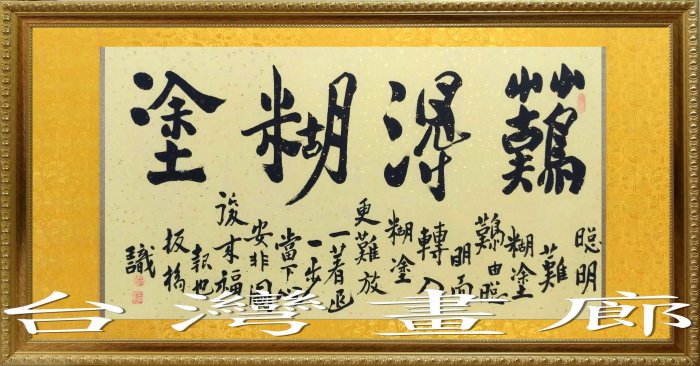 難得糊塗
聰明
難
糊塗
難由聰
明而
轉入
糊塗
更難放
一著退
一步
當下心
安非圖
後來福
報也
板橋
識
台灣畫廊